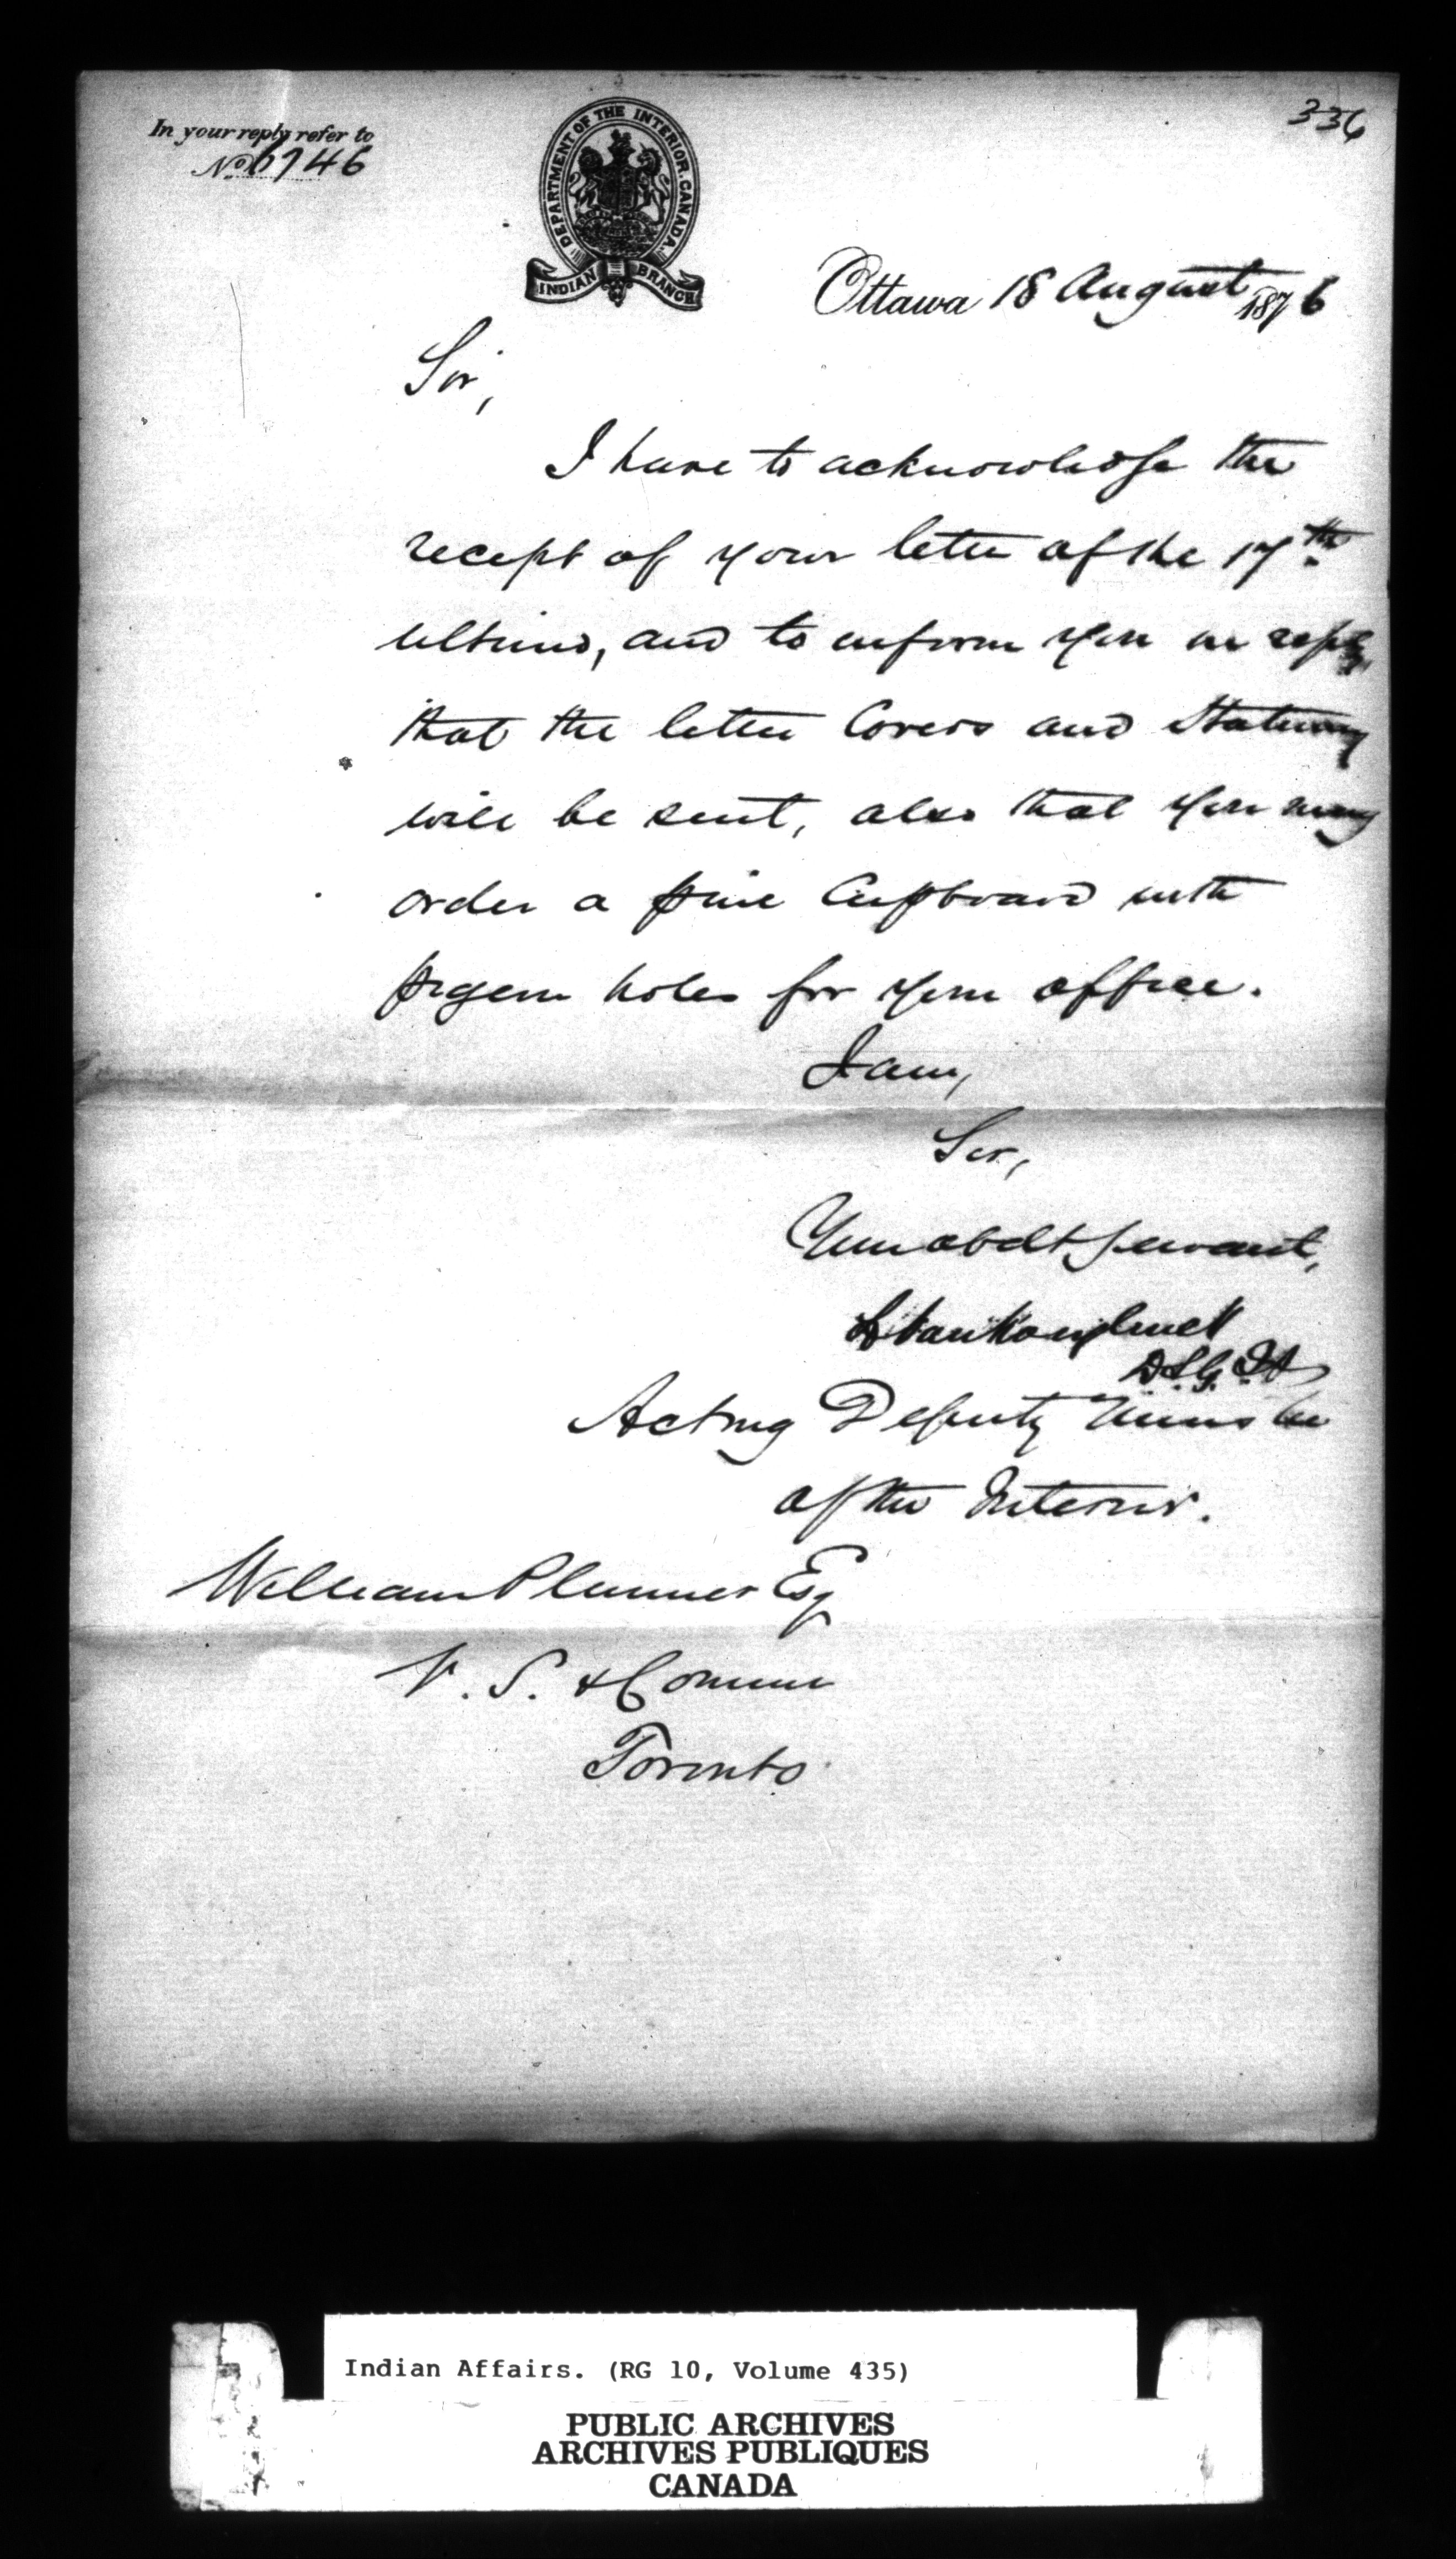 336
In your reply refer to
No 6746
DEPARTMENT OF THE INTERIOR. CANADA.
INDIAN BRANCH
Ottawa 18 August 1876
Sir,
I have to acknowledge the
receipt of your letter of the 17th
ultimo, and to inform you in reply
that the letter Covers and Stationery
will be sent, also that you may
order a pine Cupboard with
pigeon holes for your office.
I am,
Sir,
Your obdt servant,
L Vankoughnet
D.S.G. I.A
Acting Deputy Minister
of the Interior.
William Plummer Esq
V. S. & Commr
Toronto
Indian Affairs. (RG 10, Volume 435)
PUBLIC ARCHIVES
ARCHIVES PUBLIQUES
CANADA